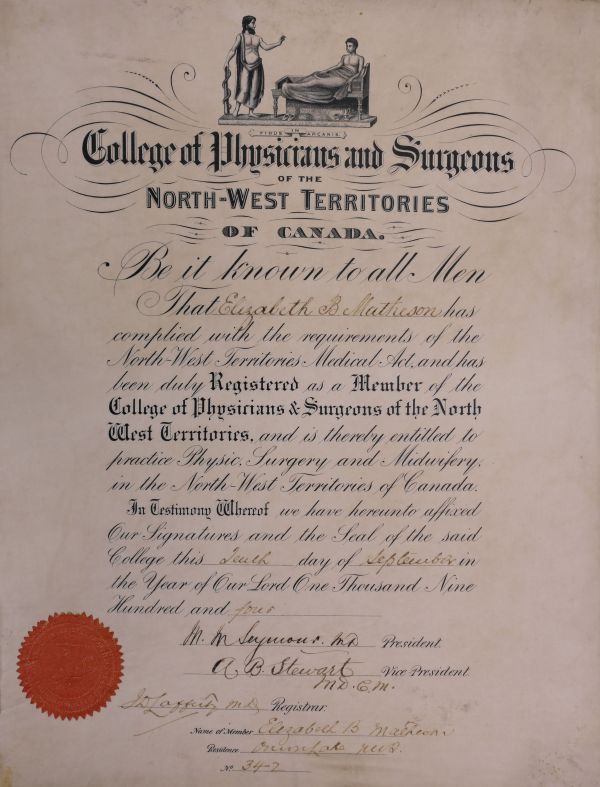 FIDUS IN ARCANIS
College of Physicians and Surgeons
OF THE
NORTH-WEST TERRITORIES
OF CANADA.
Be it known to all Men
That Elizabeth B Matheson has
complied with the requirements of the
North-West Territories Medical Act, and has
been duly Registered as a Member of the
College of Physicians & Surgeons of the North
West Territories, and is thereby entitled to
practice Physic, Surgery and Midwifery,
in the North-West Territories of Canada.
In Testimony Whereof we have hereunto affixed
Our Signatures and the Seal of the said
College this Tenth day of September in
the Year of Our Lord One Thousand Nine
Hundred and four
M. M Seymour. MD President.
A. B. Stewart Vice-President.
M.D. C.M.
J D Lafferty M.D. Registrar.
Name of Member Elizabeth B Matheson
Residence Onion Lake
No 342